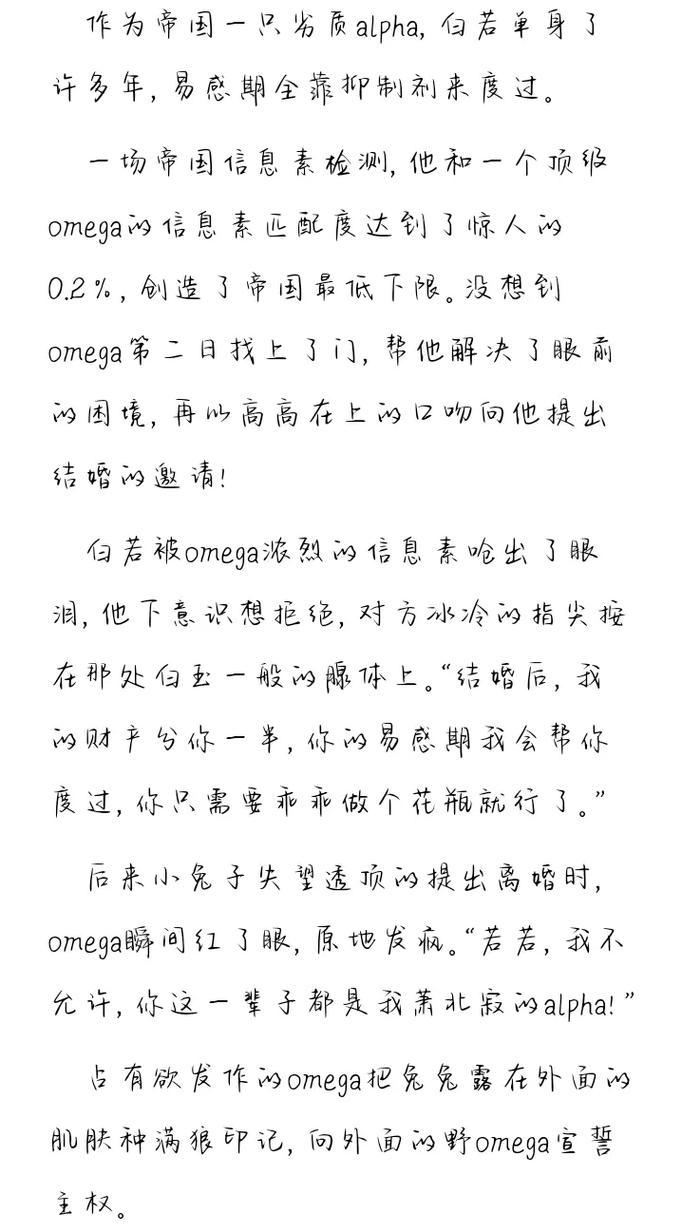 作为帝国一只劣质alpha，白若单身了
许多年，易感期全靠抑制剂来度过。
一场帝国信息素检测，他和一个顶级
omega的信息素匹配度达到了惊人的
0.2%，创造了帝国最低下限。没想到
omega第二日找上了门，帮他解决了眼前
的困境，再以高高在上的口吻向他提出
结婚的邀请！
白若被omega浓烈的信息素呛出了眼
泪，他下意识想拒绝，对方冰冷的指尖按
在那处白玉一般的腺体上。“结婚后，我
的财产分你一半，你的易感期我会帮你
度过，你只需要乖乖做个花瓶就行了。”
后来小兔子失望透顶的提出离婚时，
omega瞬间红了眼，原地发疯。“若若，我不
允许，你这一辈子都是我萧北寂的alpha！”
占有欲发作的omega把兔兔露在外面的
肌肤种满狼印记，向外面的野omega宣誓
主权。